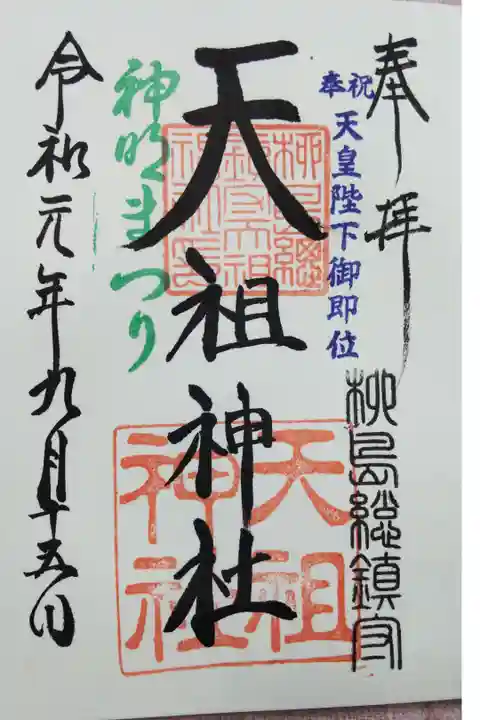 奉拝
奉祝
天皇陛下御即位
柳島総鎮守
天祖神社
天祖
神社
神明まつり
令和元年九月十五日